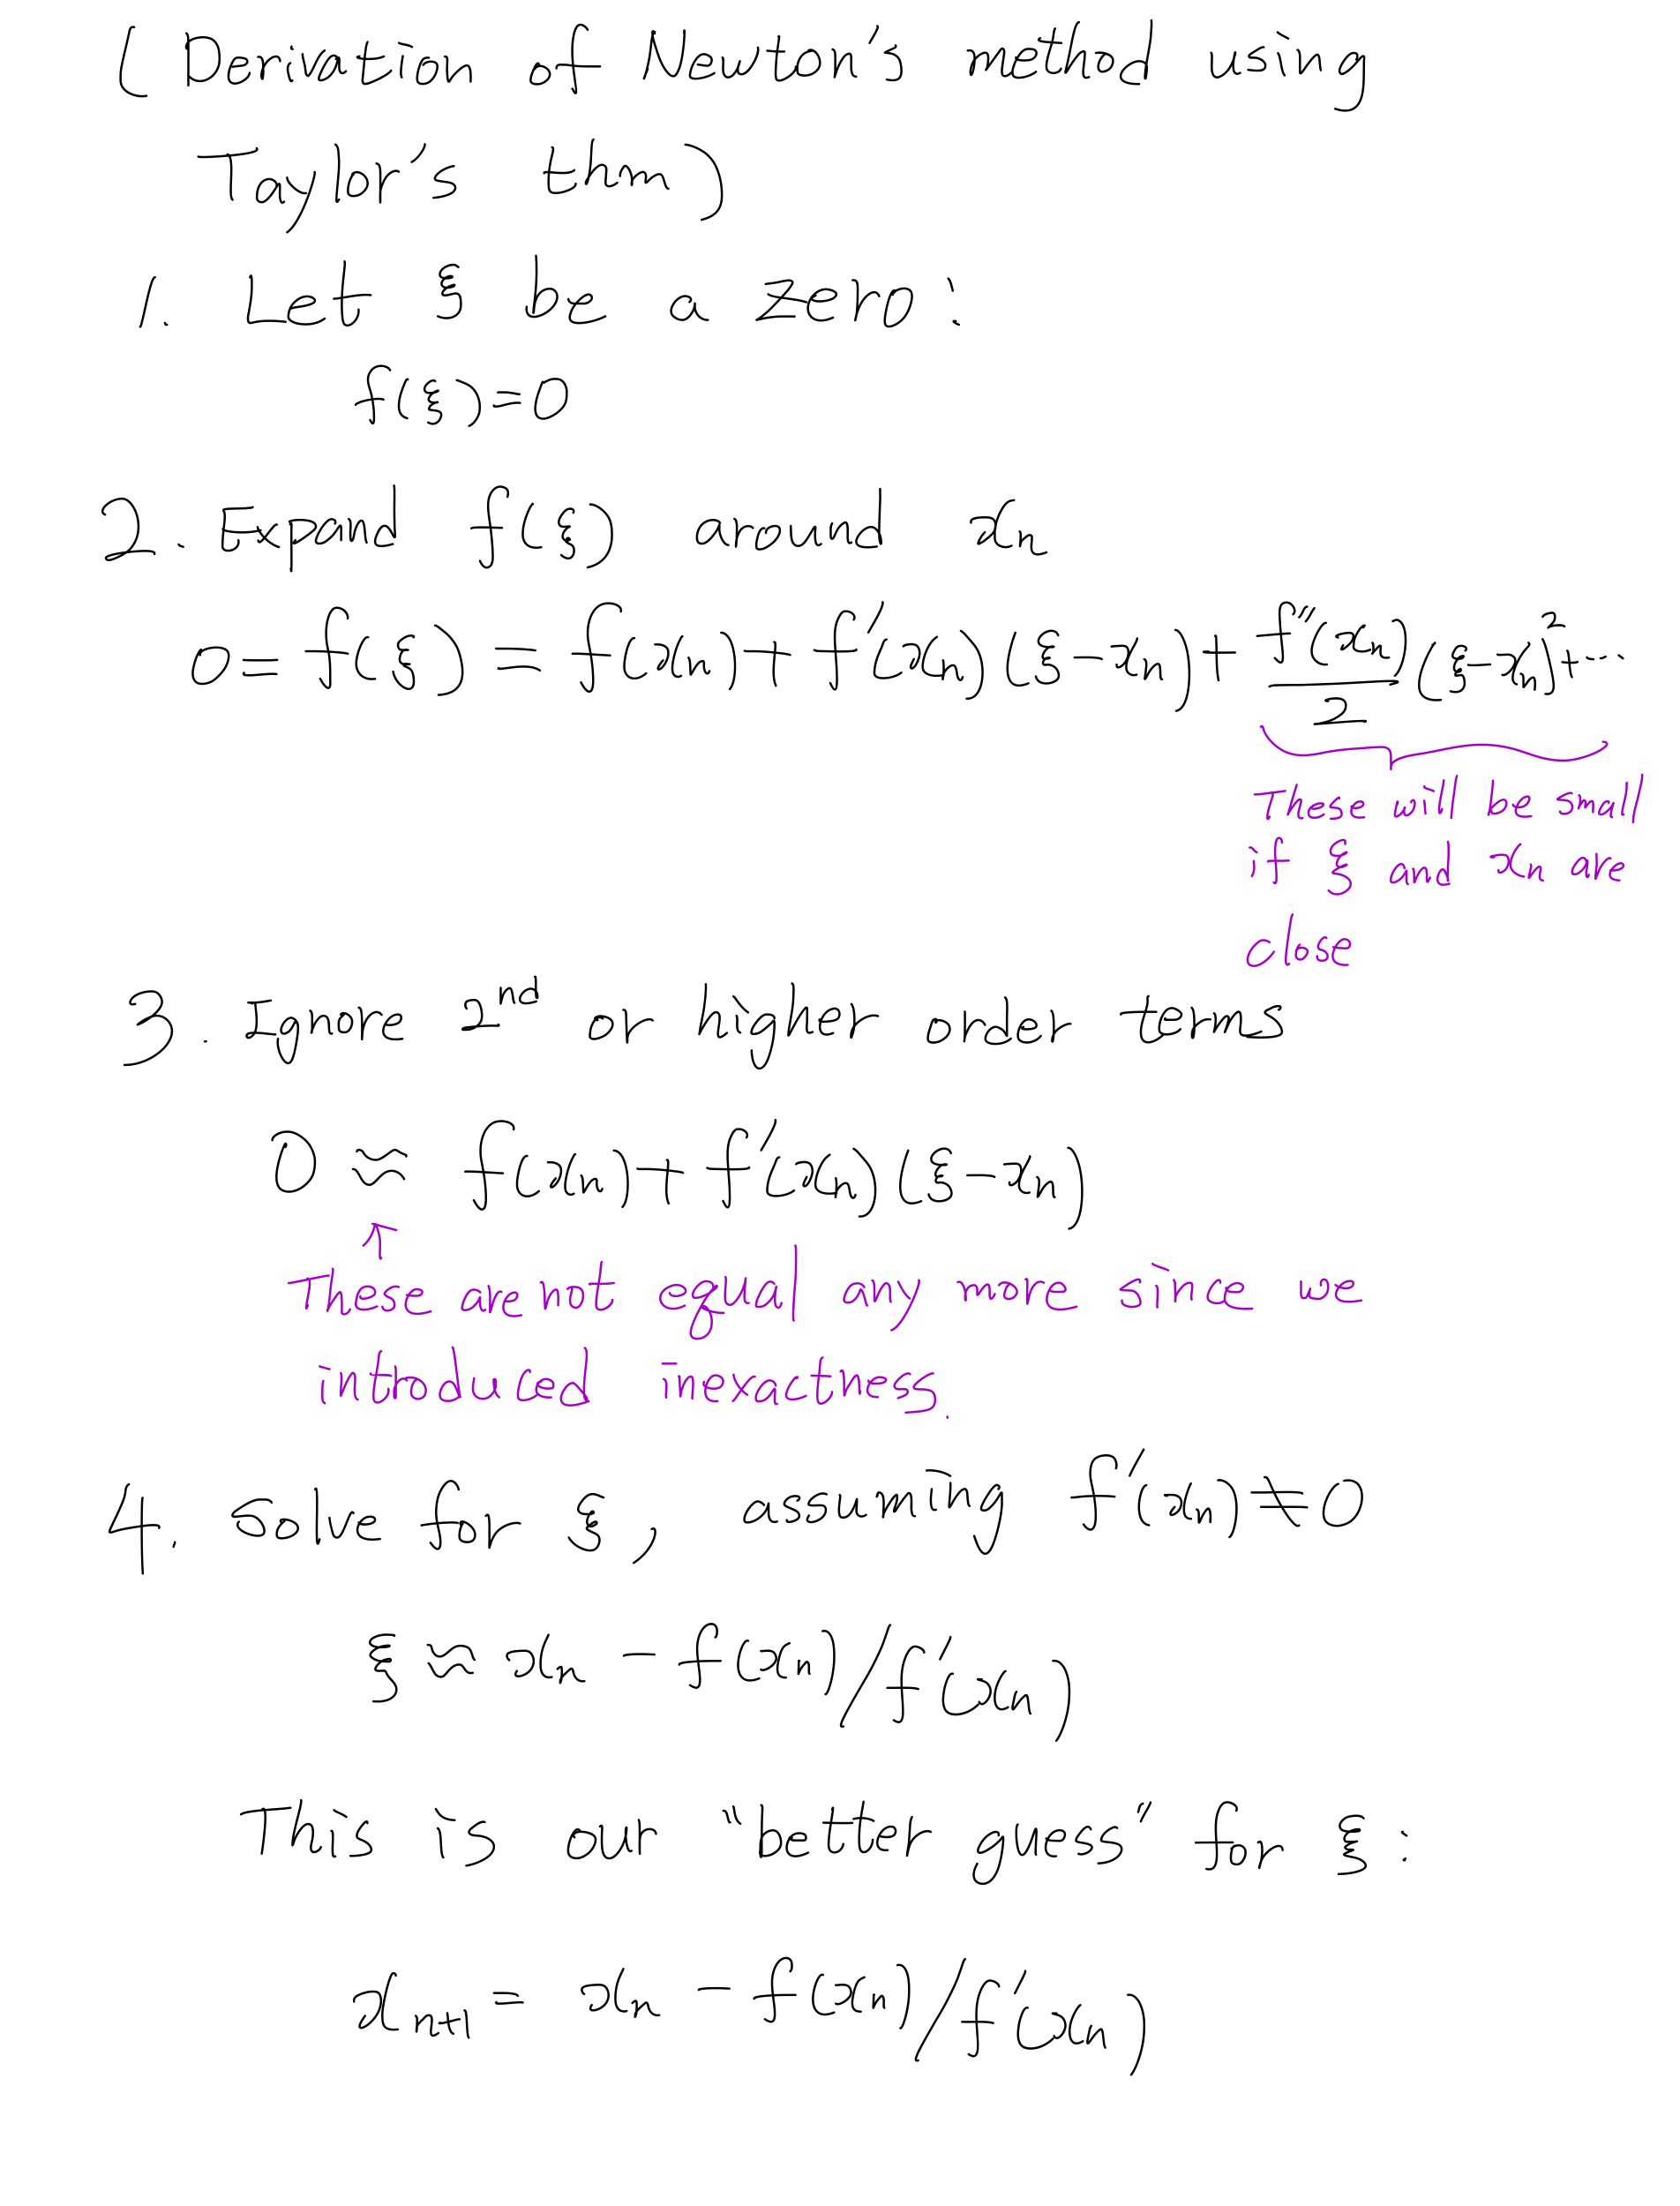 (Derivation of Newton's method using
Taylor's thm)
1. Let ξ be a zero:
f(ξ)=0
2. Expand f(ξ) around xₙ
0 = f(ξ) = f(xₙ) + f'(xₙ)(ξ-xₙ) + f''(xₙ)/2 (ξ-xₙ)² + ...
These will be small
if ξ and xₙ are
close
3. Ignore 2nd or higher order terms
0 ≈ f(xₙ) + f'(xₙ)(ξ-xₙ)
↑
These are not equal any more since we
introduced inexactness.
4. Solve for ξ, assuming f'(xₙ)≠0
ξ ≈ xₙ - f(xₙ)/f'(xₙ)
This is our "better guess" for ξ:
xₙ₊₁ = xₙ - f(xₙ)/f'(xₙ)